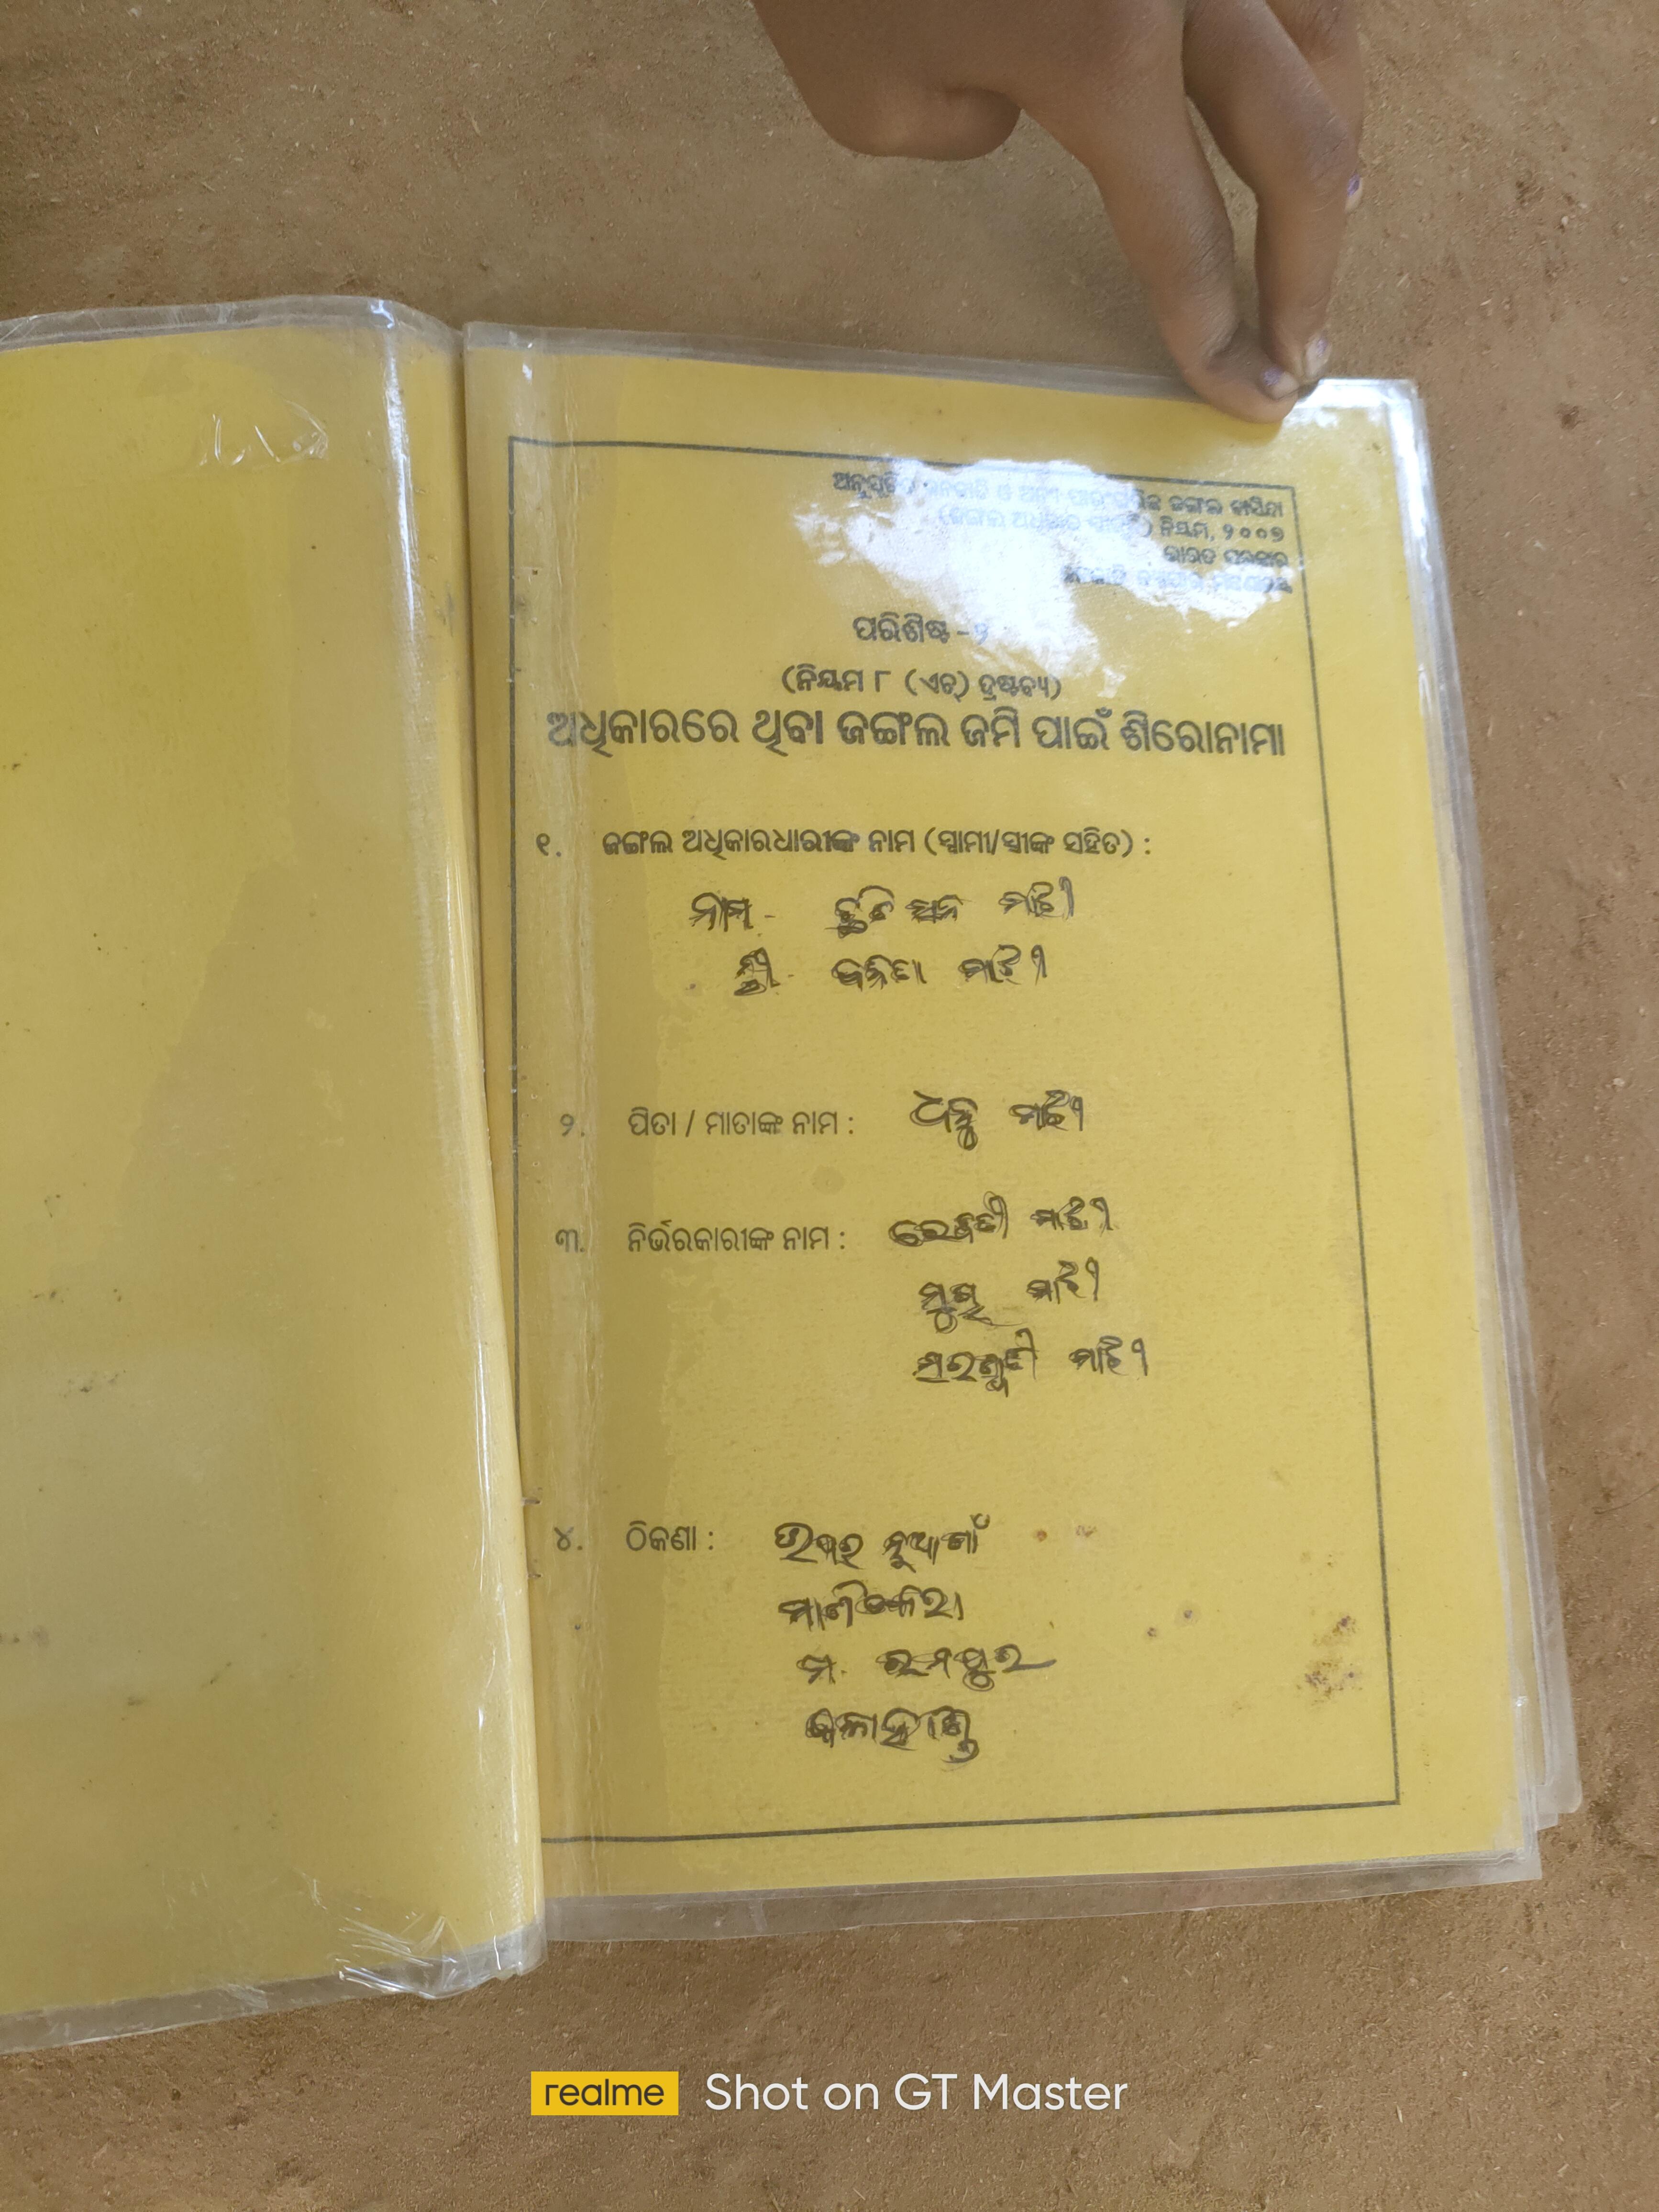 ଅନୁସୂଚିତ ଜନଜାତି ଓ ଅନ୍ୟ ପାରମ୍ପରିକ ଜଙ୍ଗଲ ବାସିନ୍ଦା
(ଜଙ୍ଗଲ ଅଧିକାର ସ୍ୱୀକୃତି) ନିୟମ, ୨୦୦୭
ଭାରତ ସରକାର
ପରିଶିଷ୍ଟ -୨
(ନିୟମ ୮ (ଏଚ୍) ଦ୍ରଷ୍ଟବ୍ୟ)
ଅଧିକାରରେ ଥିବା ଜଙ୍ଗଲ ଜମି ପାଇଁ ଶିରୋନାମା
୧. ଜଙ୍ଗଲ ଅଧିକାରଧାରୀଙ୍କ ନାମ (ସ୍ୱାମୀ/ସ୍ତ୍ରୀଙ୍କ ସହିତ) :
ନାମ - ମାଝି
ସ୍ତ୍ରୀ - ମାଝି
୨. ପିତା / ମାତାଙ୍କ ନାମ : ମାଝି
୩. ନିର୍ଭରକାରୀଙ୍କ ନାମ : ରେବତୀ ମାଝି
ମାଝି
ସରସ୍ୱତୀ ମାଝି
୪. ଠିକଣା : ନୂଆଗାଁ
ମାଣିକେରା
ରାମପୁର
କଳାହାଣ୍ଡି
realme Shot on GT Master